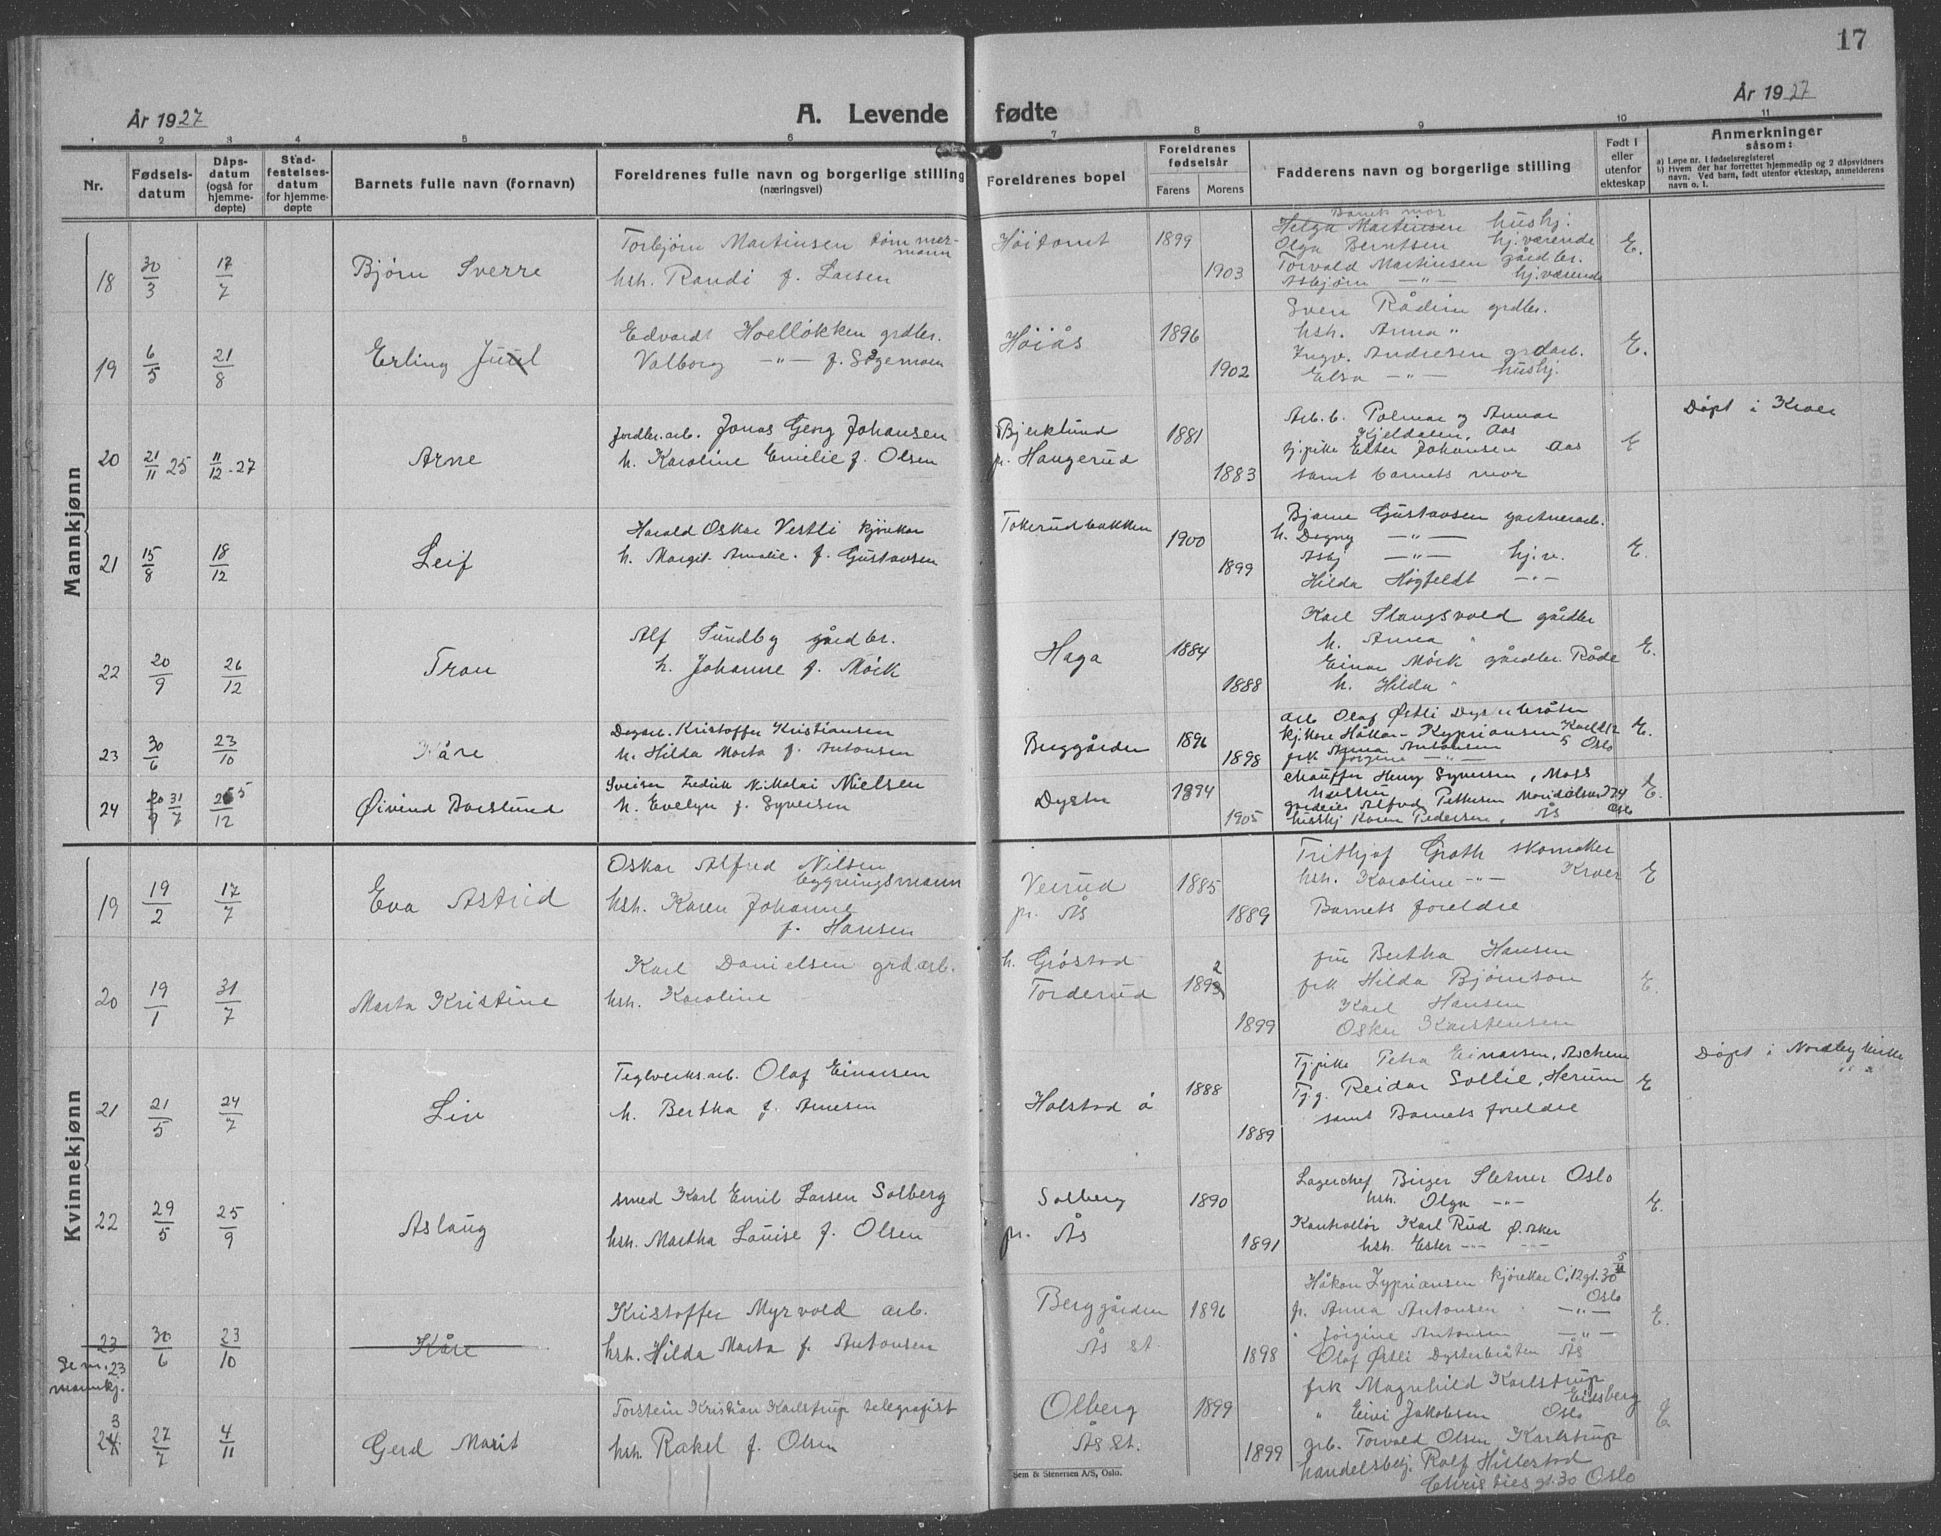 17
År 1927
A. Levende fødte
År 1927
1 2 3 4 5 6 7 8 9 10 11
Nr.
Fødsels-
datum
Dåps-
datum
(også for
hjemme-
døpte)
Stad-
festelses-
datum
for hjemme-
døpte
Barnets fulle navn (fornavn)
Foreldrenes fulle navn og borgerlige stilling
(næringsvei)
Foreldrenes bopel
Foreldrenes
fødselsår
Farens Morens
Fadderens navn og borgerlige stilling
Født i
eller
utenfor
ekteskap
Anmerkninger
såsom:
a) Løpe nr. i fødselsregisteret
b) Hvem der har forrettet hjemmedåp og 2 dåpsvidners
navn. Ved barn, født utenfor ekteskap, anmelderens
navn o. l.
Mannkjønn
18 30/3 17/7 Bjørn Sverre
Torbjørn Martinsen tømmer-
mann
hsh. Randi f. Larsen
Høitomt 1899 1903
Barnets mor
Helga Martinsen hushj.
Olga Berntsen hj.værende
Torvald Martinsen gårdbr.
Asbjørn —"— hj.værende
E.
19 6/5 21/8 Erling Juul
Edvardt Hoelløkken grdbr.
Valborg —"— f.
Høiås 1896 1902
Sven Rådim grdbr.
hsh. Anna "
Ingv. Andresen grdarb.
Elsa —"— hushj.
E.
20 21/11 25 11/12 - 27 Arne
Jordbr.arb. Jonas Georg Johansen
h. Karoline Emilie f. Olsen
Bjerklund
pr. Haugerud
1881 1883
Arb.b. Palmar og Annar
Kjeldalen, Aas
tj.pike Ester Johansen Aas
samt barnets mor
E
Døpt i Kroer
21 15/8 18/12 Leif
Harald Oskar Vestli kjørekar
h. Margit Amalie f. Gustavsen
Tokerudbakken 1900 1899
Bjarne Gustavsen gartnerarb.
h. Dagny —"—
Asbj —"— hj.v.
Hilda Høgfeldt —"—
E.
22 20/9 26/12 Tron
Alf Sundby gårdbr.
h. Johanne f. Mörk
Haga 1884 1888
Karl Slangsvold gårdbr
h. Anna "
Einar Mörk gårdbr. Råde
h. Hilda "
E.
23 30/6 23/10 Kåre
Kristoffer Kristiansen
h. Hilda Marta f. Antonsen
Berggården 1896 1898
arb Olaf Østli Dysterbråten
kj.kare Håkon Kypriansen
frk Anna Antonsen 5 Oslo
Jørgine —"—
E.
24 31/7 26/12 Øivind Borslund
Sveiser Fredrik Nikolai Nielsen
h. Evelyn f. Syversen
Dyster 1894 1905
Chauffer Henry Syversen, Moss
Alfred Pettersen
husthj Karen Pedersen, Ås Oslo
E.
Kvinnekjønn
19 19/2 17/7 Eva Astrid
Oskar Alfred Nilsen
bygningsmann
hsh. Karen Johanne
f. Hansen
Veirud
pr. Ås
1885 1889
Fritjof Groth skomaker
hsh. Karoline —"— Kroer
Barnets foreldre
E
20 19/1 31/7 Marta Kristine
Karl Danielsen grd.arb.
hsh. Karoline
h. Grøstad
Torderud
1892 1899
fru Bertha Hansen
frk Hilda Bjørnson
Karl Hansen
Oskar Karstensen
E.
21 21/5 24/7 Liv
Teglverks.arb. Olaf Einarsen
h. Bertha f. Arnesen
Holstad ö 1888 1889
Tj.pike Petra Einarsen, Aschem
Tj.g. Reidar Sollie, Herum
samt Barnets foreldre
E
Døpt i Nordby kirke
22 29/5 25/9 Aslaug
smed Karl Emil Larsen Solberg
hsh. Martha Louise f. Olsen
Solberg
pr. Ås
1890 1891
Lagerchef Birger Sletner Oslo
hsh. Olga —"—
Kontrollør Karl Rud Ø. Aker
hsh. Ester —"—
E.
23 30/6 23/10 Kåre
Se nr. 23
mannkj.
Kristoffer Myrvold arb.
hsh. Hilda Marta f. Antonsen
Berggården
Ås st.
1896 1898
Håkon Zypriansen kjørekar C. 12 gt. 30
Oslo
fr. Anna Antonsen —"—
" Jørgine Antonsen —"—
Olaf Østli Dysterbråten Ås
E.
3
24. 27/7 4/11 Gerd Marit
Torstein Kristian Karlstrup telegrafist
hsh. Rakel f. Olsen
Olberg
Ås St.
1899 1899
frk Magnhild Karlstrup
Eidsberg
" Eivi Jakobsen Oslo
arb. Torvald Olsen Karlstrup
handelsbetj. Rolf Hillestad
Christies gt. 30 Oslo
E
Sem & Stenersen A/S, Oslo.